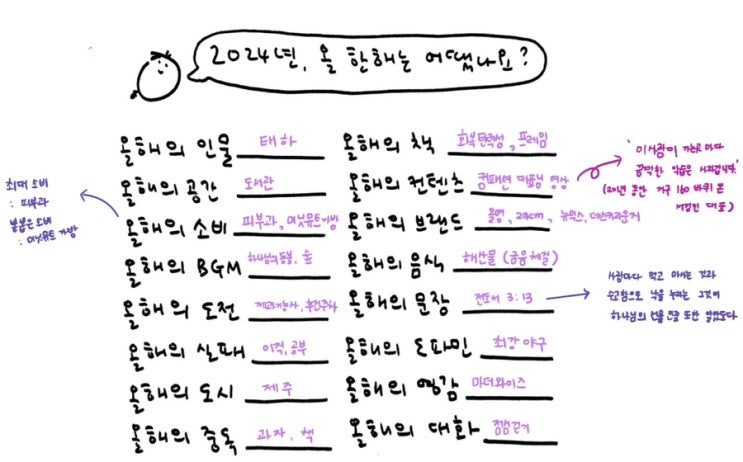 2024년, 올 한해는 어땠나요?
올해의 인물 태하
올해의 공간 도서관
올해의 소비 피부과, 이닛뮤트가방
올해의 BGM 하나님의 동불, 숲
올해의 도전 제과기능사, 무건주차
올해의 실패 이직, 공부
올해의 도시 제주
올해의 중독 과자, 책
올해의 책 회복탄력성, 프레임
올해의 컨텐츠 컴패션 영상
올해의 브랜드 올영, 29cm, 뉴믹스, 데스커라운지
올해의 음식 해산물 (금융체결)
올해의 문장 전도서 3:13
올해의 도파민 최강야구
올해의 영감 마더와이즈
올해의 대화 정병권기
최대 소비
: 피부과
소비
: 이닛뮤트 가방
'이사람이 가는곳마다
끔찍한 악습은 사라집니다'
(20년 동안 지구 160 바퀴 돈
서정인 대표)
사람마다 먹고 마시는 것과
수고함으로 낙을 누리는 그것이
하나님의 선물인줄 또한 알았도다